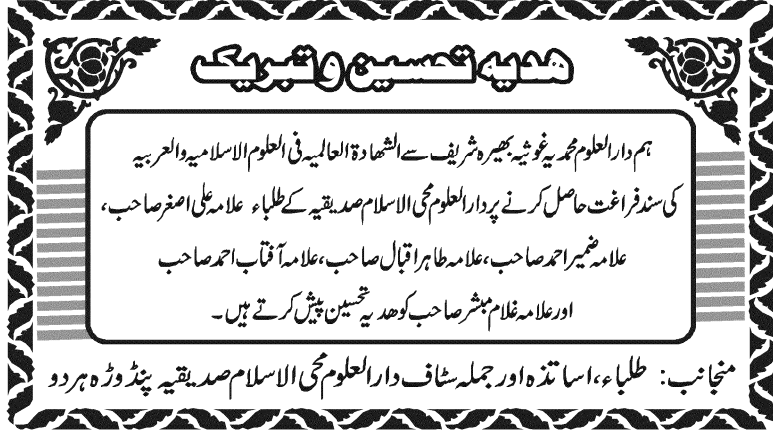 ھدیہ تحسین و تبریک
ہم دارالعلوم محمدیہ غوثیہ بھیرہ شریف سے الشھادۃ العالمیہ فی العلوم الاسلامیہ والعربیہ
کی سند فراغت حاصل کرنے پر دارالعلوم محی الاسلام صدیقیہ کے طلباء علامہ علی اصغر صاحب،
علامہ ضمیر احمد صاحب، علامہ طاہر اقبال صاحب، علامہ آفتاب احمد صاحب
اور علامہ غلام مبشر صاحب کو ھدیہ تحسین پیش کرتے ہیں۔
منجانب: طلباء، اساتذہ اور جملہ سٹاف دارالعلوم محی الاسلام صدیقیہ پنڈوڑہ ہردو